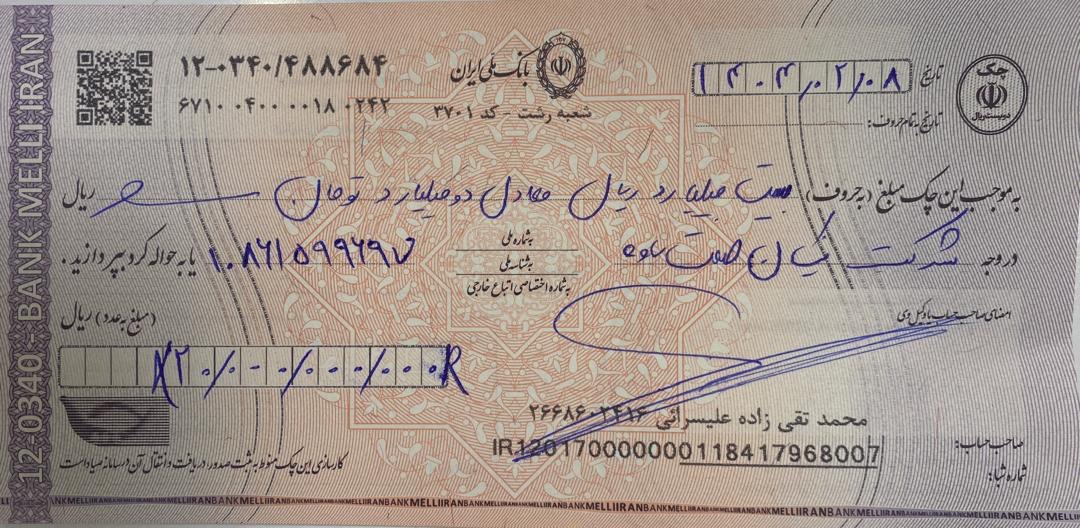 BANK MELLI IRAN - 12-0340
۱۲-۰۳۴۰/۴۸۸۶۸۴
۶۷۱۰ ۰۴۰۰ ۰۰۱۸ ۰۲۴۲
بانک ملی ایران
شعبه رشت - کد ۳۷۰۱
تاریخ ۱۴۰۳/۰۲/۰۸
تاریخ به تمام حروف:
چک
در بیست ریال
به موجب این چک مبلغ (به حروف) بیست میلیارد ریال معادل دو میلیارد تومان ریال
در وجه شرکت صنعت ساوه
به شماره ملی
به شناسه ملی
به شماره اختصاصی اتباع خارجی
یا به حواله کرد بپردازید.
امضای صاحب حساب یا وکیل وی
(مبلغ به عدد) ریال
۲۰/۰۰۰/۰۰۰/۰۰۰R
محمد تقی زاده علیسرائی
صاحب حساب:
شماره شبا:
IR120170000000118417968007
کارسازی این چک منوط به ثبت صدور، دریافت و انتقال آن در سامانه صیاد است
BANKMELLIIRANBANKMELLIIRANBANKMELLIIRANBANKMELLIIRAN